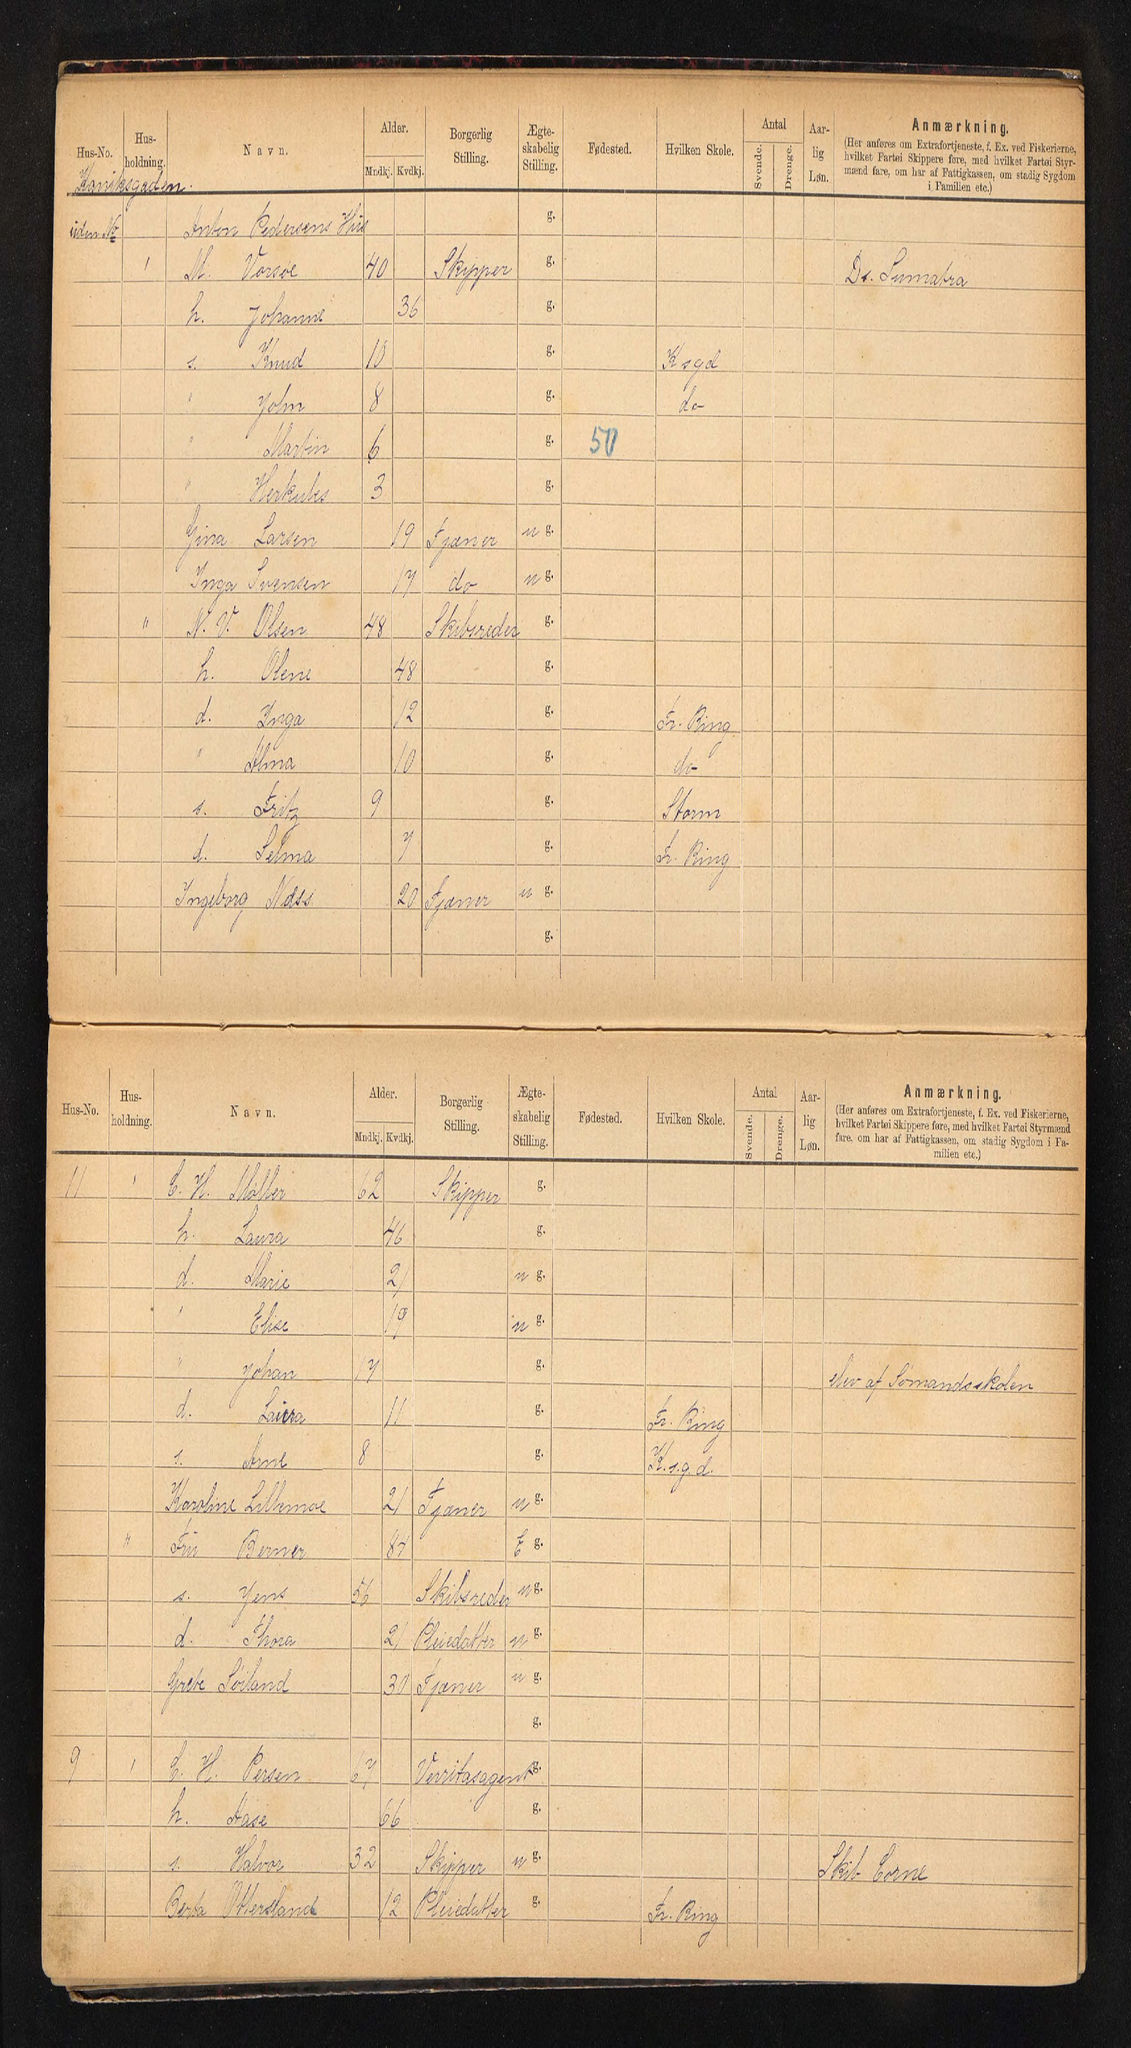 Hus-No. Hus-holdning. Navn. Alder. Mndkj. Kvdkj. Borgerlig Stilling. Ægte-skabelig Stilling. Fødested. Hvilken Skole. Antal Svende. Drenge. Aar-lig Løn. Anmærkning.
(Her anføres om Extrafortjeneste, f. Ex. ved Fiskerierne, hvilket Fartøi Skippere føre, med hvilket Fartøi Styr-mænd fare, om har af Fattigkassen, om stadig Sygdom i Familien etc.)
uden No Anton Pedersens Hus g.
' M. Vorsøe 40 Skipper g. Ds. Sumatra
h. Johanne 36 g.
s. Knud 10 g. K s g d
" John 8 g. do
" Martin 6 g. 50
" Herkules 3 g.
Gina Larsen 19 Tjener u g.
Inga Svensen 17 do u g.
" N. V. Olsen 48 Skibsreder g.
h. Olene 48 g.
d. Inga 12 g. Fr. Ring
" Alma 10 g. do
s. Fritz 9 g. Storm
d. Selma 7 g. Fr. Ring
Ingeborg Næss 20 Tjener u g.
g.
Hus-No. Hus-holdning. Navn. Alder. Mndkj. Kvdkj. Borgerlig Stilling. Ægte-skabelig Stilling. Fødested. Hvilken Skole. Antal Svende. Drenge. Aar-lig Løn. Anmærkning.
(Her anføres om Extrafortjeneste, f. Ex. ved Fiskerierne, hvilket Fartøi Skippere føre, med hvilket Fartøi Styrmænd fare, om har af Fattigkassen, om stadig Sygdom i Fa-milien etc.)
11 ' C. H. Møller 62 Skipper g.
h. Laura 46 g.
d. Marie 21 u g.
' Elise 19 u g.
" Johan 17 g. elev af Sømandsskolen
d. Laura 11 g. Fr. Ring
s. Arne 8 g. K.s.g.d.
Karoline Lillemoe 21 Tjener u g.
" Fru Berner 84 E g.
s. Jens 56 Skibsreder u g.
d. Thora 21 Pleiedatter u g.
Grete Søiland 30 Tjener u g.
g.
9 ' C. H. Persen 67 Verritasagent g.
h. Aase 66 g.
s. Halvor 32 Skipper u g. Skib Corne
Berta Ottersland 12 Pleiedatter g. Fr. Ring